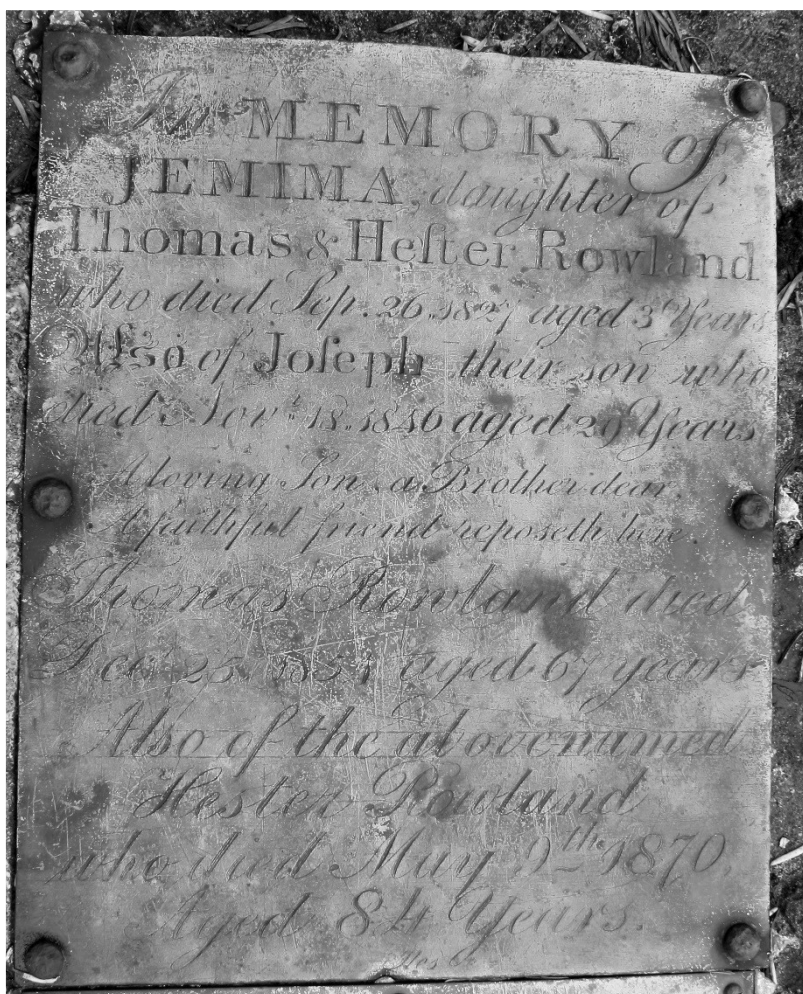 In MEMORY of
JEMIMA, daughter of
Thomas & Heſter Rowland
who died Sep. 26, 1827 aged 3 Years
Also of Joſeph their son who
died Novr. 18, 1846 aged 29 Years
A loving Son, a Brother dear,
A faithful friend reposeth here.
Thomas Rowland died
Decr 25 aged 67 years
Also of the abovenamed
Hester Rowland
who died May 9th 1870.
Aged 84 Years.